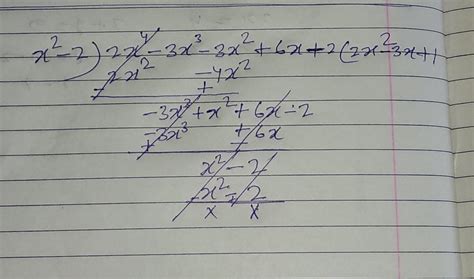 x² - 2 ) 2x⁴ - 3x³ - 3x² + 6x - 2 ( 2x² - 3x + 1
2x² - 4x²
- +
- 3x³ + x² + 6x - 2
- 3x³ + 6x
+ -
x² - 2
x² - 2
- +
x x